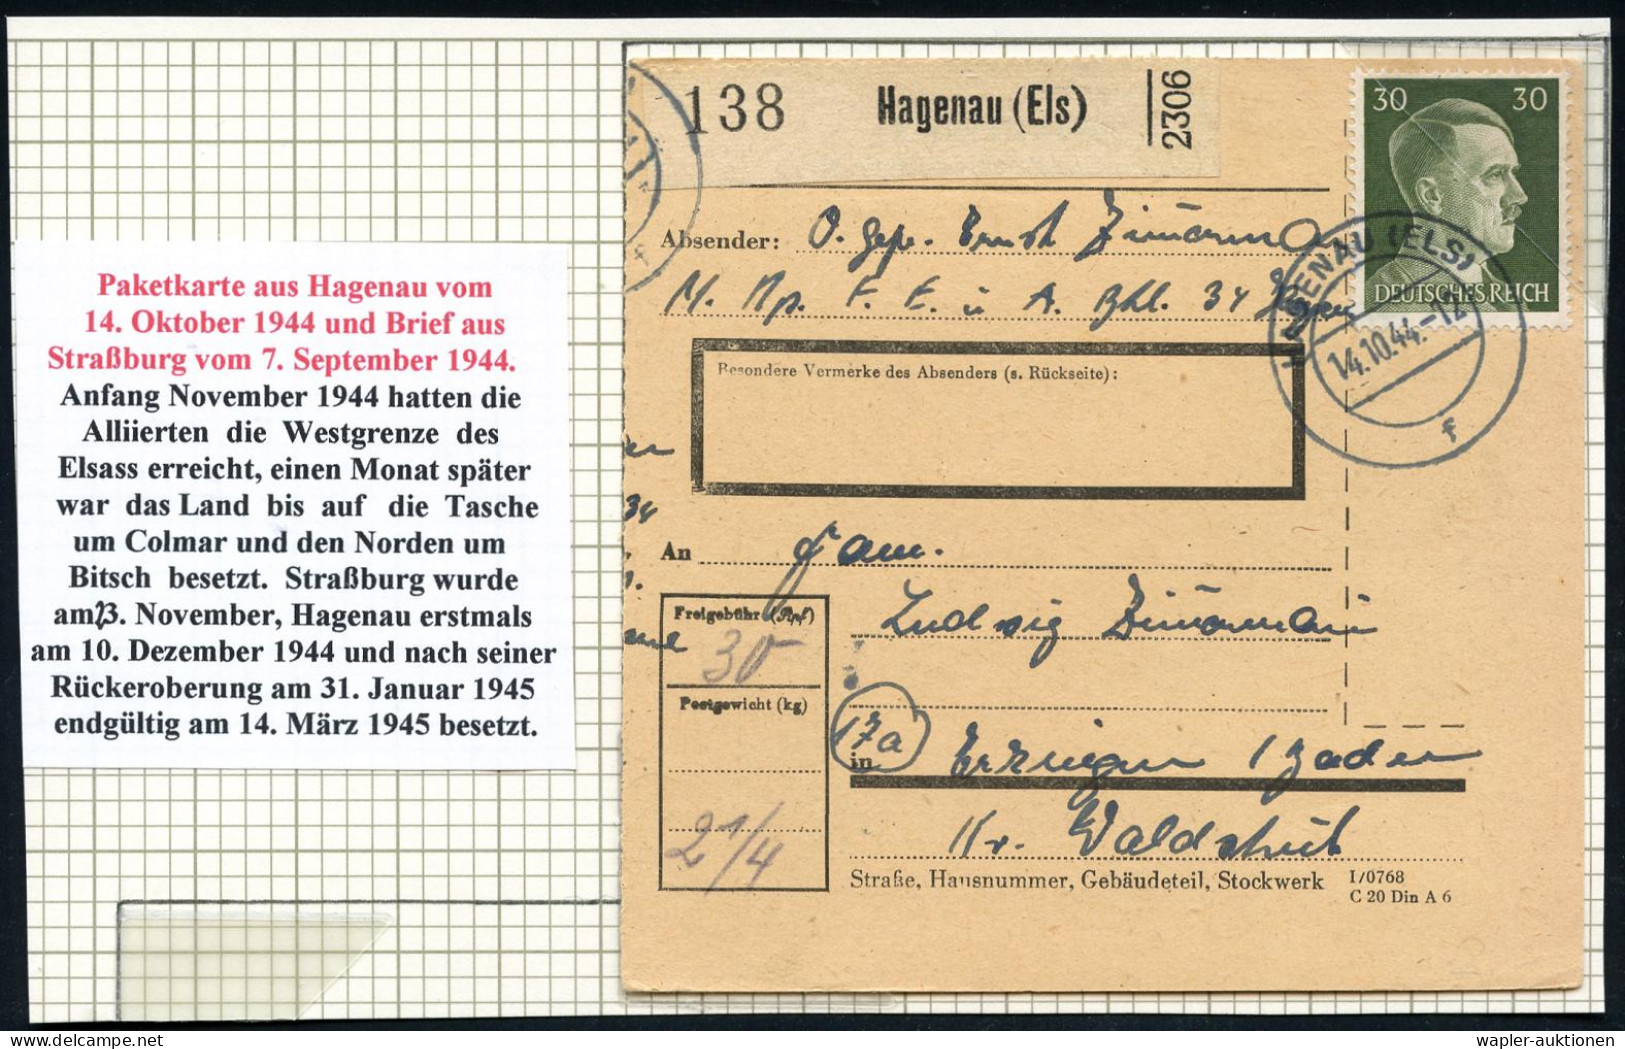 Paketkarte aus Hagenau vom
14. Oktober 1944 und Brief aus
Straßburg vom 7. September 1944.
Anfang November 1944 hatten die
Alliierten die Westgrenze des
Elsass erreicht, einen Monat später
war das Land bis auf die Tasche
um Colmar und den Norden um
Bitsch besetzt. Straßburg wurde
am 23. November, Hagenau erstmals
am 10. Dezember 1944 und nach seiner
Rückeroberung am 31. Januar 1945
endgültig am 14. März 1945 besetzt.
138 Hagenau (Els) 2306
30 30
DEUTSCHES REICH
HAGENAU (ELS)
14.10.44.-12
f
Absender: O. Gefr. Ernst
M. Np. F. E. u A. Bhl. 34
Besondere Vermerke des Absenders (s. Rückseite):
34
An Fam.
Freigebühr (Rpf)
30
Ludwig
Postgewicht (kg)
17a
in Erzingen / Baden
21/4
Kr. Waldshut
Straße, Hausnummer, Gebäudeteil, Stockwerk
I/0768
C 20 Din A 6
wapler-auktionen
www.delcampe.net